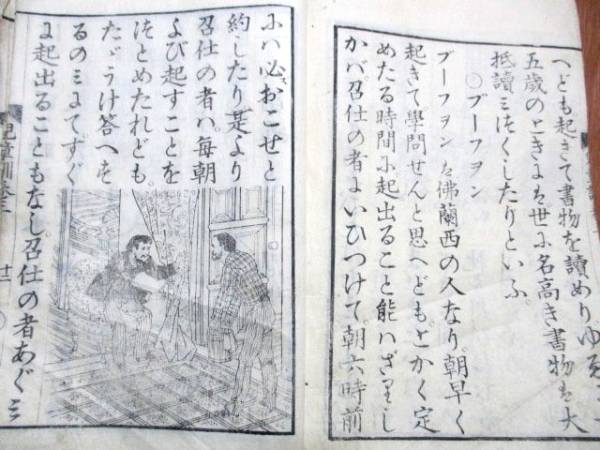 へども起きて書物を讀めりゆゑに
五歳のときよは世ふ名高き書物は大
抵讀ミ盡くしたりといふ。
○ブーフヲン
ブーフヲンは佛蘭西の人なり。朝早く
起きて學問せんと思へども。とかく定
めたる時間ふ起出ること能ハざりし
かバ。召仕の者よいひつけて。朝六時前
ふハ必おこせと
約したり是より
召仕の者ハ。毎朝
よび起すことを
つとめたれども。
たゞうけ答へを
るのミよてすぐ
よ起出ることもなし。召仕の者あぐミ
兒童訓卷二
十二